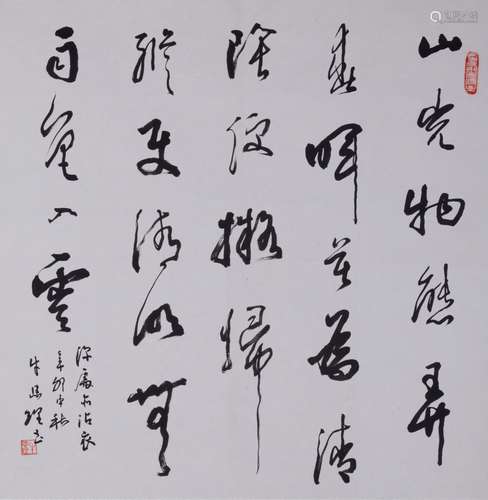 山光物態弄
春暉莫為清
陰便擬歸
縱使清明無
雨色入雲
深處亦沾衣
辛卯中秋